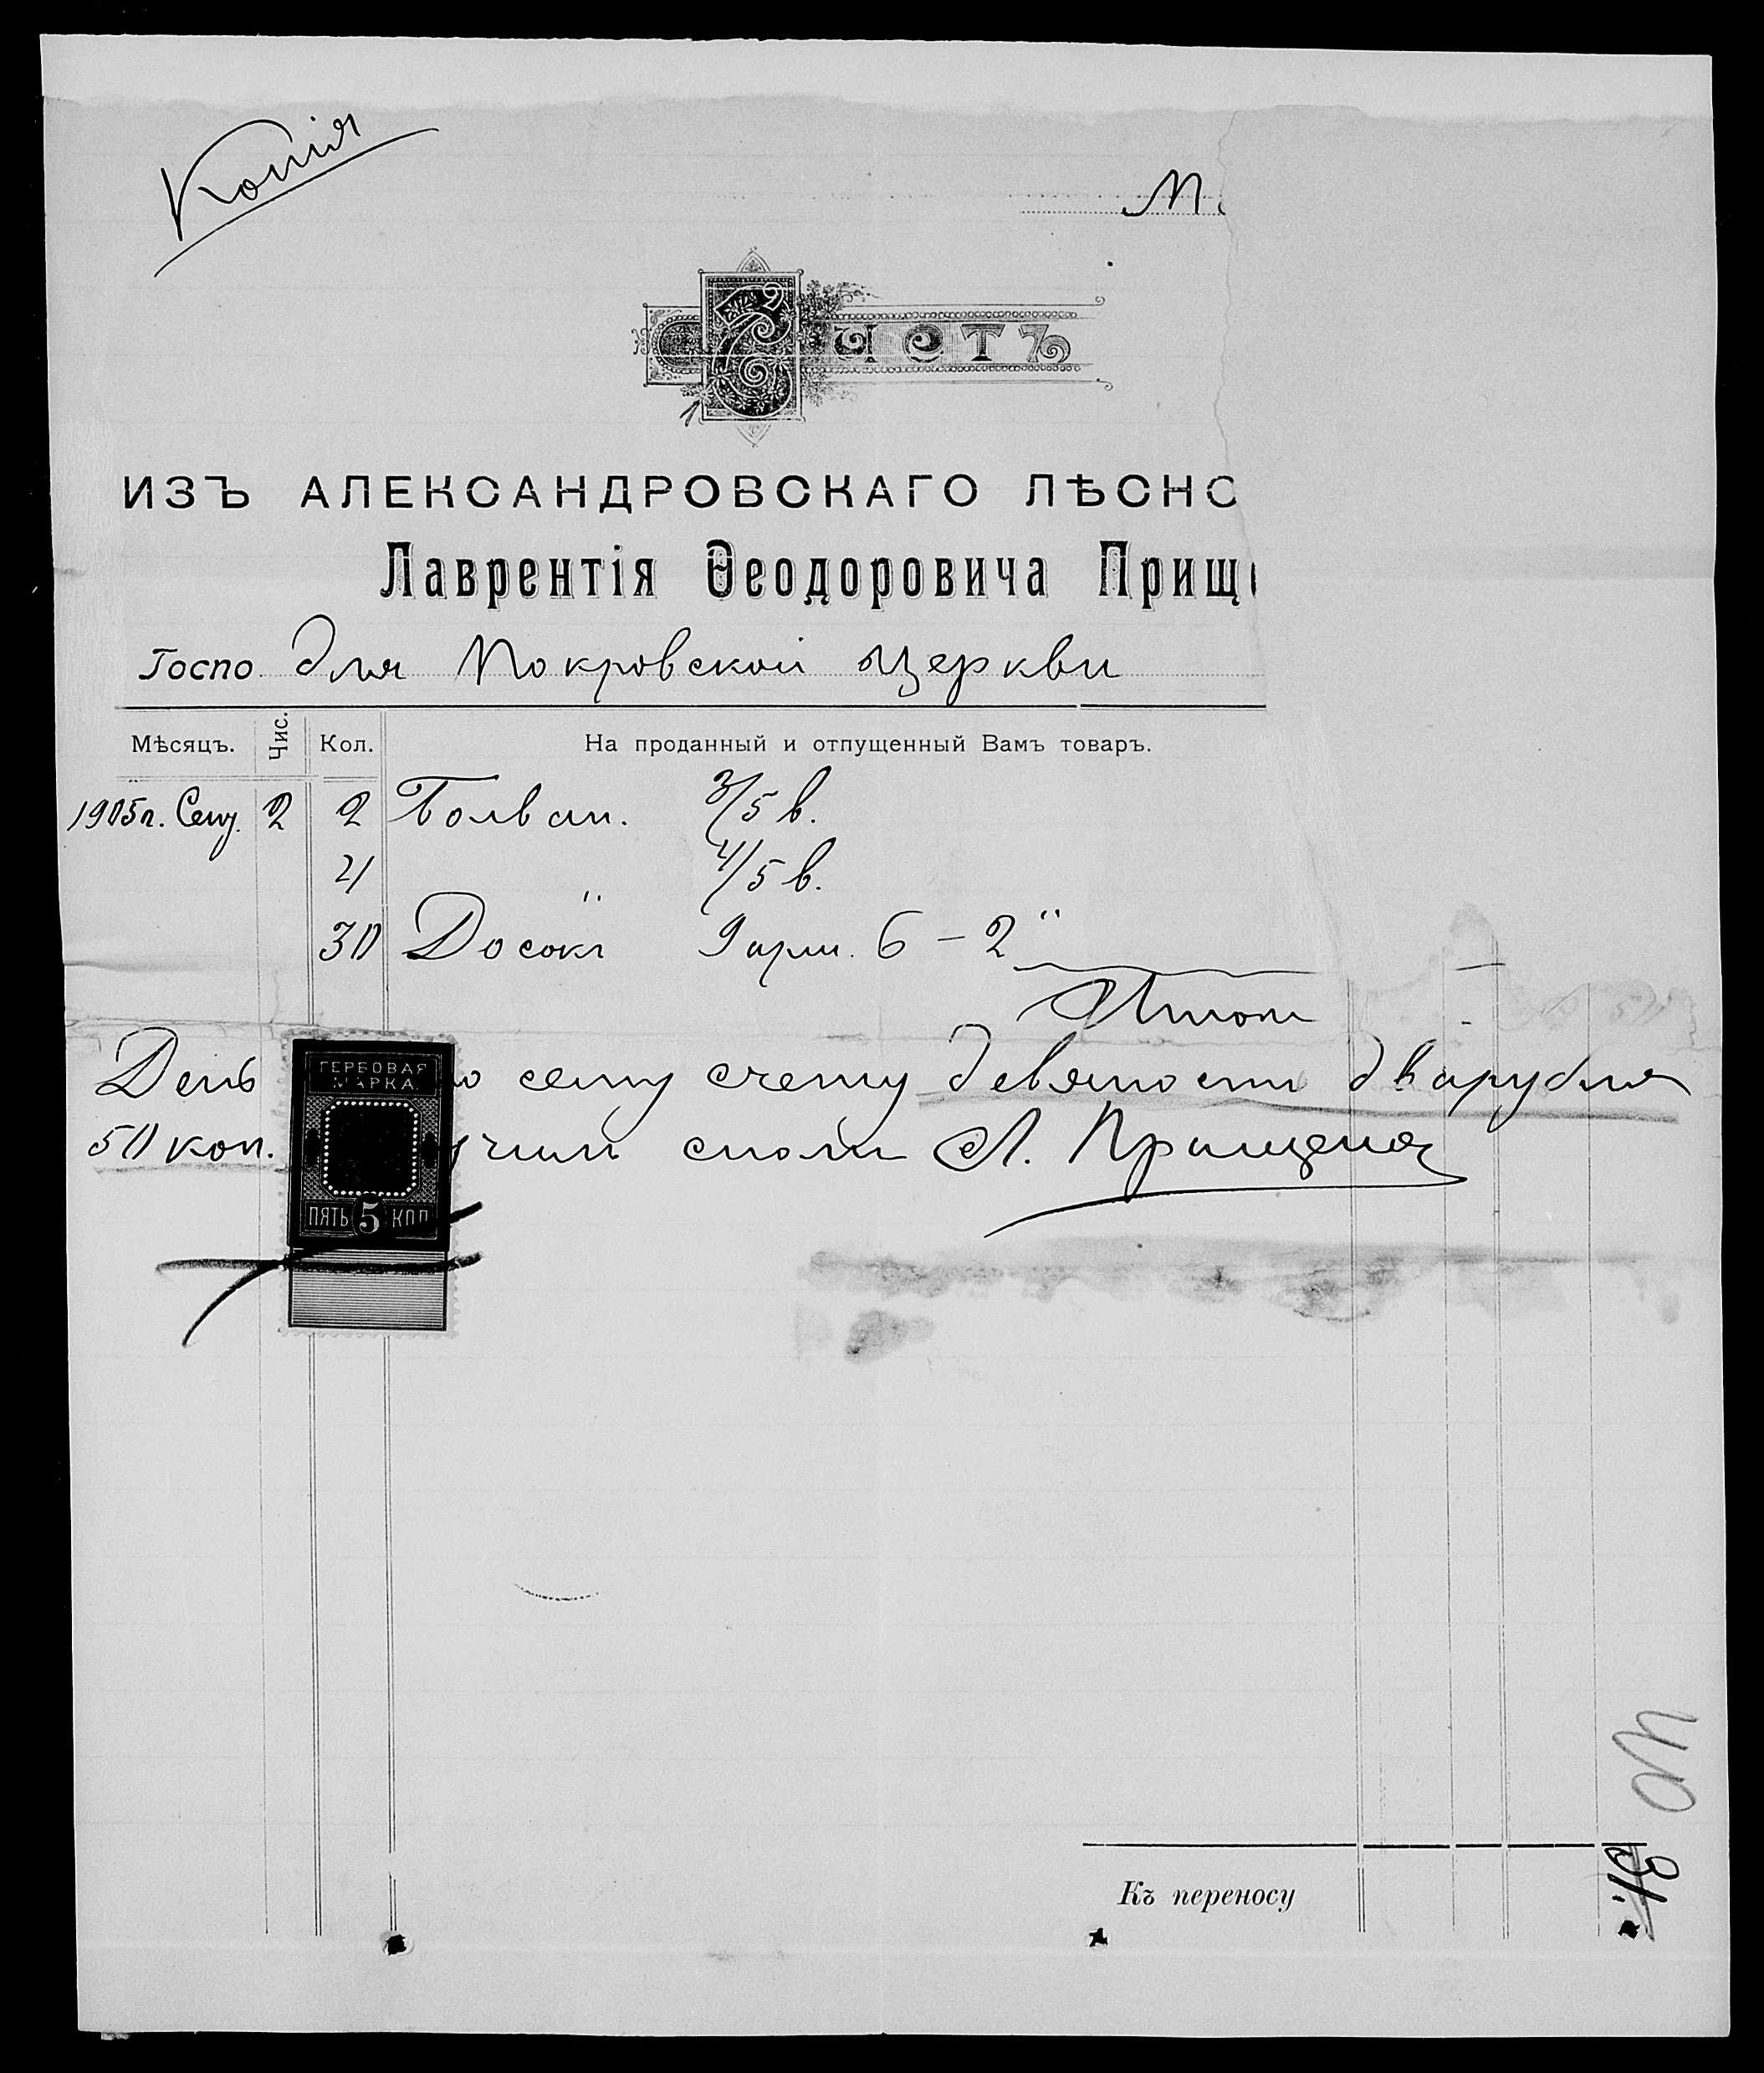 Копія
М.
Счетъ
ИЗЪ АЛЕКСАНДРОВСКАГО ЛѢСНО
Лаврентія Ѳеодоровича Прищ
Госпо для Покровской церкви
Мѣсяцъ. Чис. Кол. На проданный и отпущенный Вамъ товаръ.
1905 г. Сент. 2 2 Болван. 3/5 в.
4 " 4/5 в.
30 Досокъ 9 арш. 6 – 2"
Итого
День о сему счету девяносто два рубля
50 коп. училъ сполн Л. Прищепа
ГЕРБОВАЯ
МАРКА
ПЯТЬ 5 КОП
Къ переносу